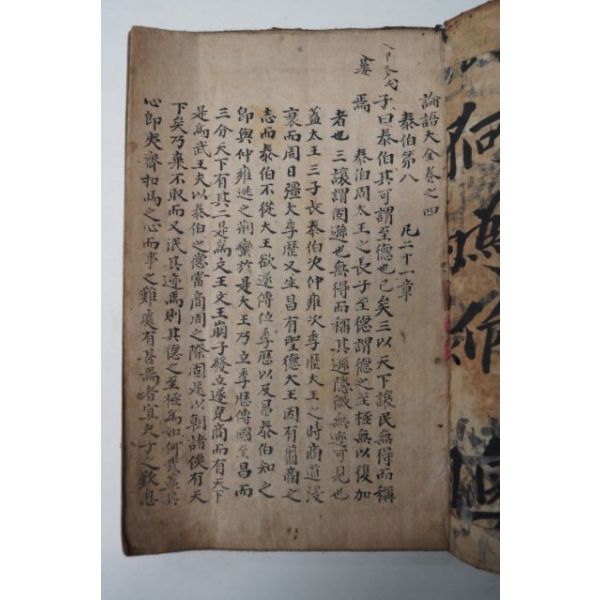 論語大全卷之四
泰伯第八 凡二十一章
子曰泰伯其可謂至德也已矣三以天下讓民無得而稱
焉 泰伯周太王之長子至德謂德之至極無以復加
者也三讓謂固遜也無得而稱其遜隱微無迹可見也
蓋太王三子長泰伯次仲雍次季歷大王之時商道浸
衰而周日彊大季歷又生昌有聖德大王因有翦商之
志而泰伯不從大王欲遂傳位季歷以及昌泰伯知之
卽與仲雍逃之荊蠻於是大王乃立季歷傳國至昌而
三分天下有其二是爲文王文王崩子發立遂克商而有天下
是爲武王夫以泰伯之德當商周之際固足以朝諸侯有天
下矣乃棄不取而又泯其迹焉則其德之至極爲如何哉蓋其
心卽夷齊扣馬之心而事之難處有甚焉者宜夫子之歎息